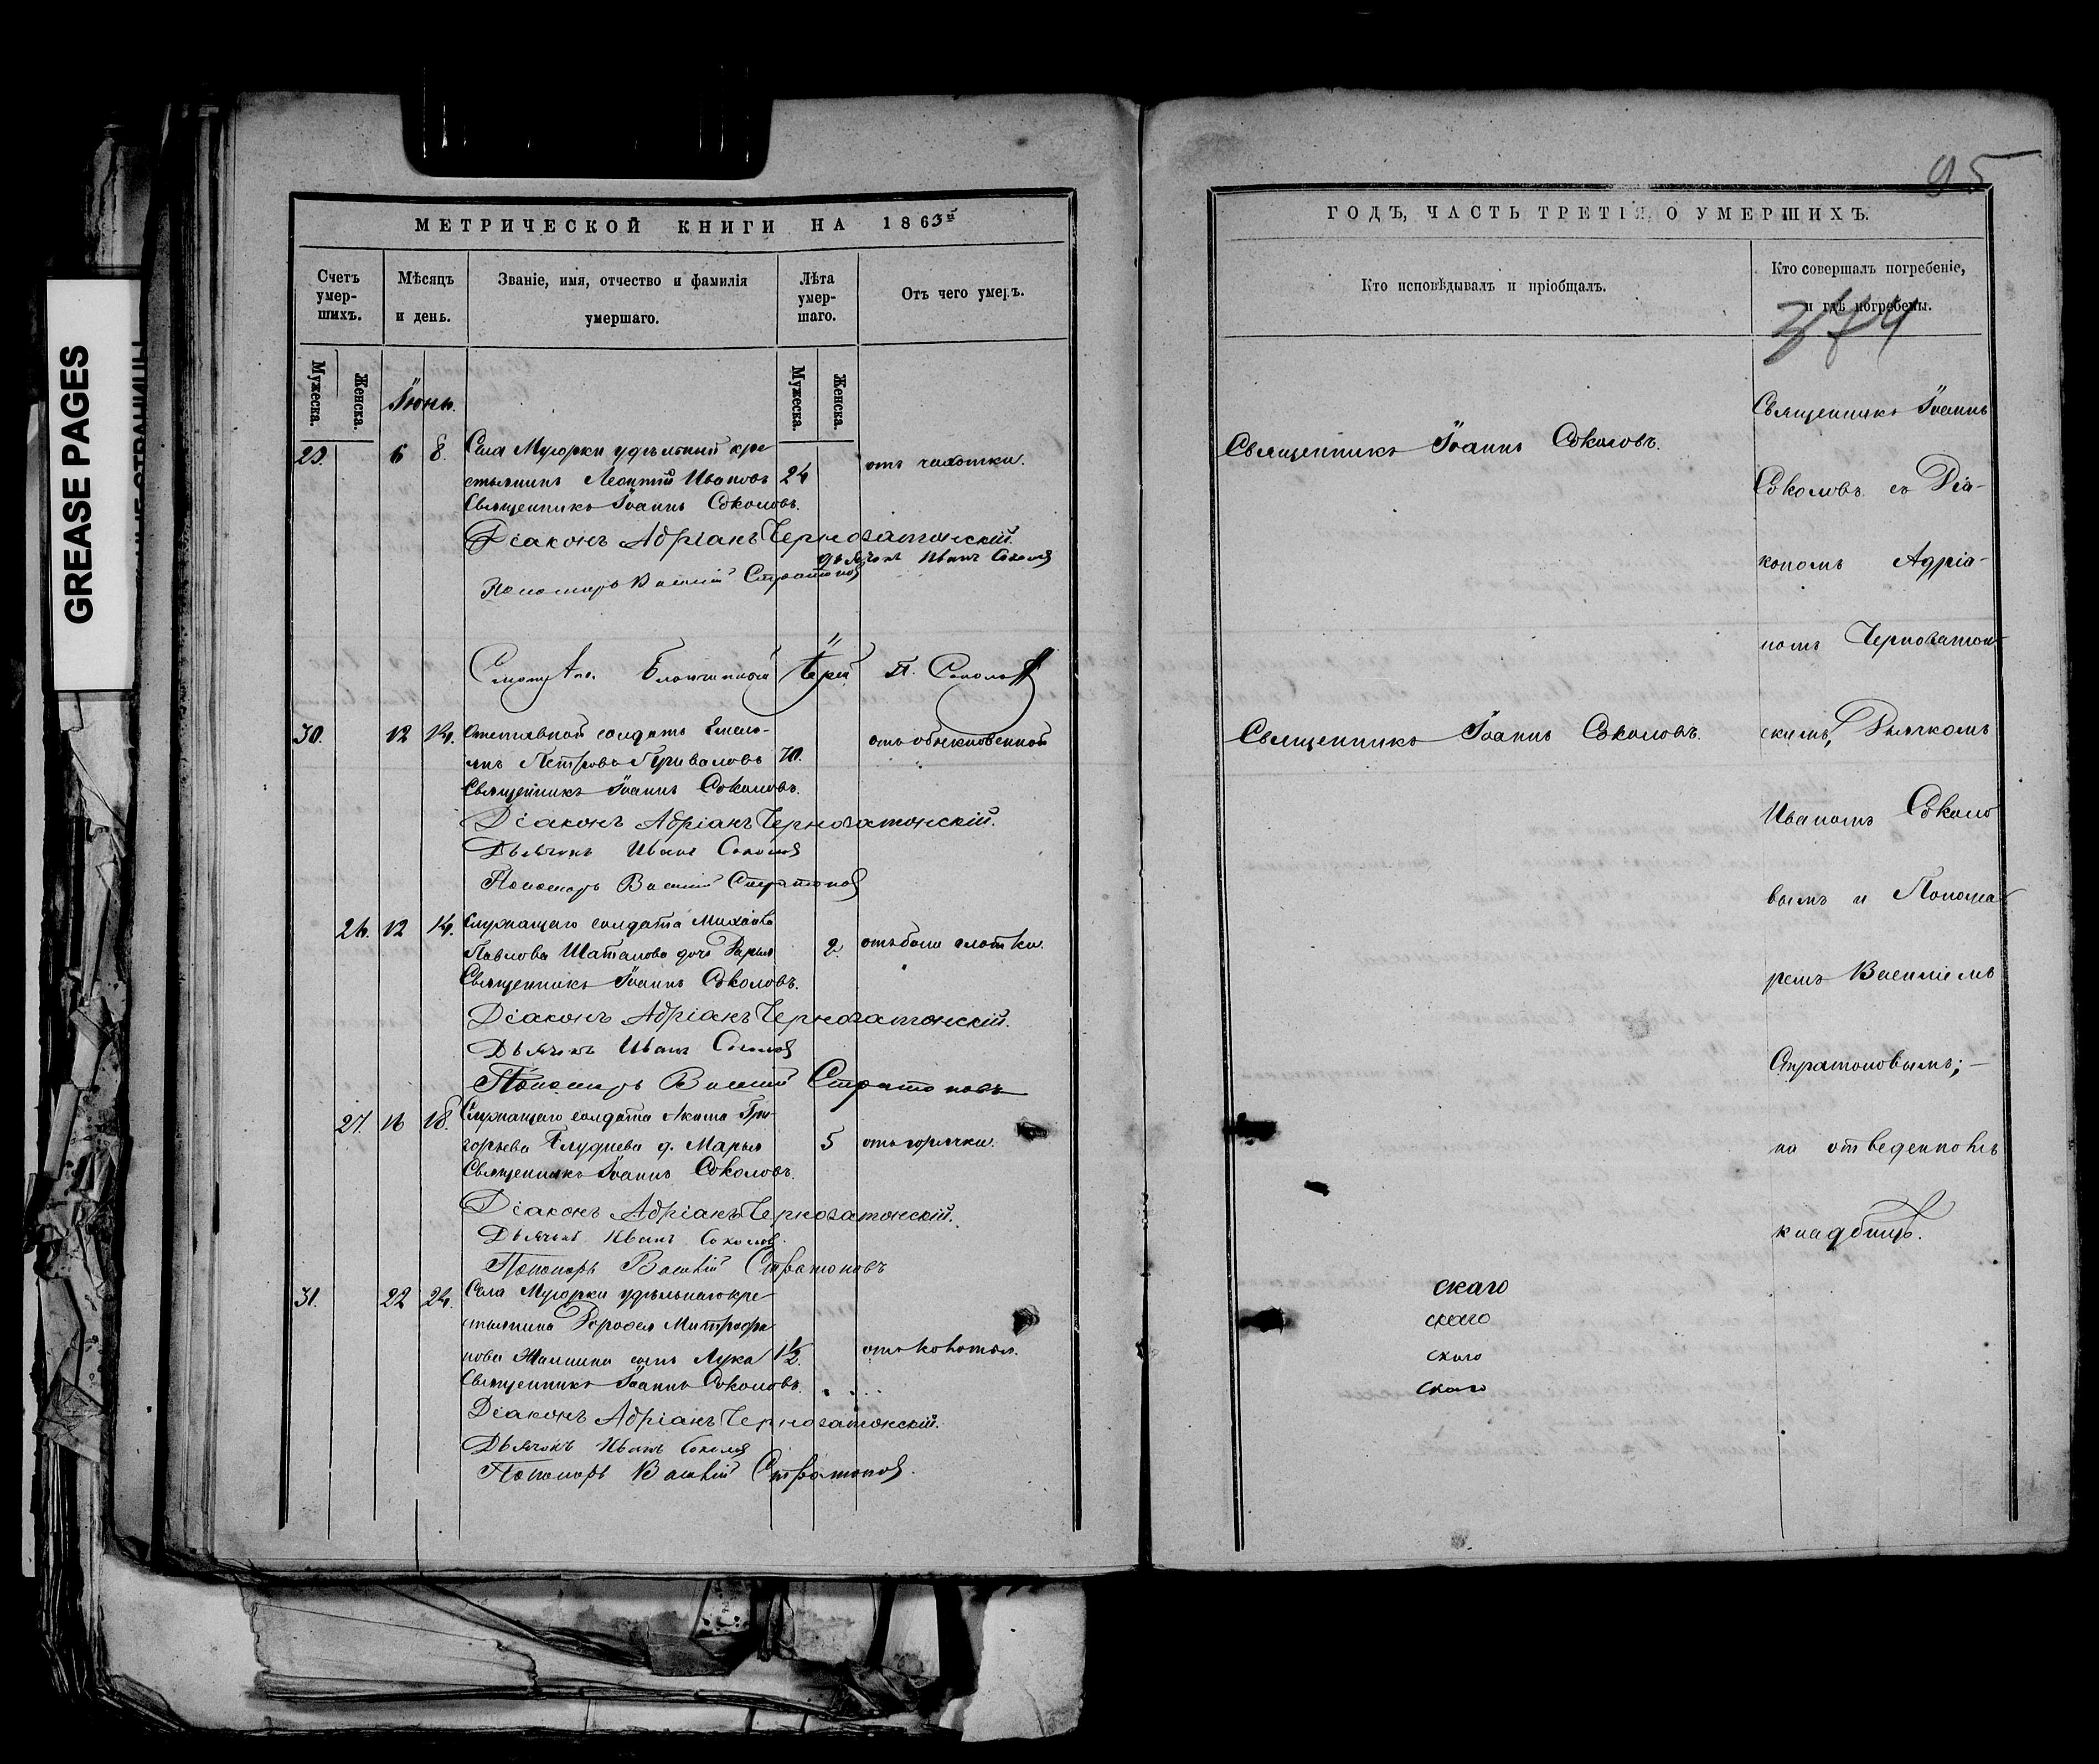 GREASE PAGES
МЕТРИЧЕСКОЙ КНИГИ НА 1863й
Счетъ умер-шихъ.
Мѣсяцъ и день.
Званіе, имя, отчество и фамилія умершаго.
Лѣта умер-шаго.
Отъ чего умеръ.
Мужеска.
Женска.
Іюнь.
Мужеска.
Женска.
29. 6 8. Села Мусорки удѣльный кре-
стьянинъ Леонтій Ивановъ 24 отъ чахотки.
Священникъ Іоаннъ Соколовъ.
Діаконъ Адріанъ Черноватонскій.
Дьячокъ Иванъ Соколов
Пономарь Василій Стратонов
Благочинный Іерей П. Соколов
30. 12 14. Отставной солдатъ Емель-
янъ Петровъ Приваловъ 70. отъ обыкновенной
Священникъ Іоаннъ Соколовъ.
Діаконъ Адріанъ Черноватонскій.
Дьячокъ Иванъ Соколов
Пономарь Василій Стратонов
26. 12 14. Служащаго солдата Михаила
Павлова Шаталова дочь Дарья 2. отъ боли глотки.
Священникъ Іоаннъ Соколовъ.
Діаконъ Адріанъ Черноватонскій.
Дьячокъ Иванъ Соколов
Пономарь Василій Стратоновъ
27. 16 18. Служащаго солдата Акима Гри-
горьева Блуднева д. Марья 5 отъ горячки.
Священникъ Іоаннъ Соколовъ.
Діаконъ Адріанъ Черноватонскій.
Дьячокъ Иванъ Соколов
Пономарь Василій Стратоновъ
31. 22 24. Села Мусорки удѣльнаго кре-
стьянина Митрофа-
нова сынъ Лука 1½. отъ
Священникъ Іоаннъ Соколовъ.
Діаконъ Адріанъ Черноватонскій.
Дьячокъ Иванъ Соколов
Пономарь Василій Стратонов.
95
ГОДЪ, ЧАСТЬ ТРЕТІЯ, О УМЕРШИХЪ.
Кто исповѣдывалъ и пріобщалъ.
Кто совершалъ погребеніе,
и гдѣ погребены.
374
Священникъ Іоаннъ Соколовъ.
Священникъ Іоаннъ Соколовъ.
Священникъ Іоаннъ
Соколовъ съ Діа-
кономъ Адріа-
номъ Черноватон-
скимъ, Дьячкомъ
Иваномъ Соколо
вымъ и Понома
ремъ Василіемъ
Стратоновымъ; —
на отведенномъ
кладбищѣ.
скаго
скаго
скаго
скаго